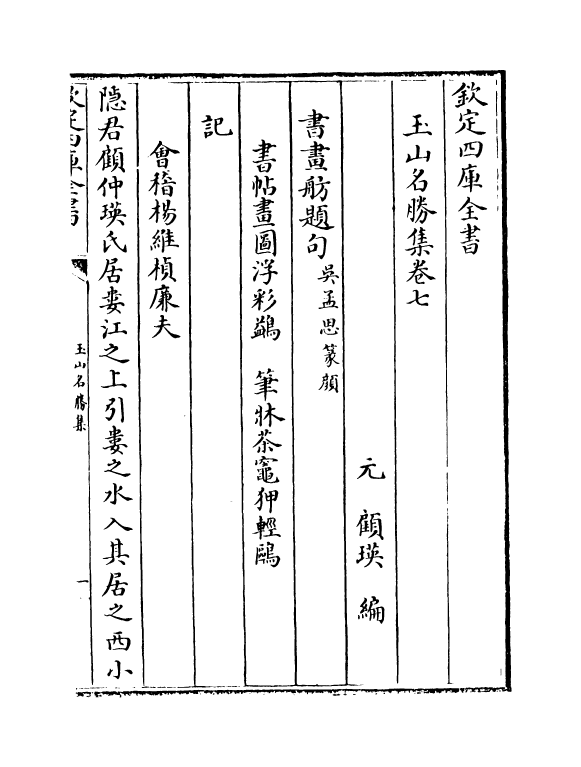 欽定四庫全書
玉山名勝集卷七
元 顧瑛 編
書畫舫題句吳孟思篆顔
書帖畫圖浮彩鷁 筆牀茶竈狎輕鷗
記
會稽楊維楨廉夫
隠君顧仲瑛氏居婁江之上引婁之水入其居之西小
欽定四庫全書
玉山名勝集
一